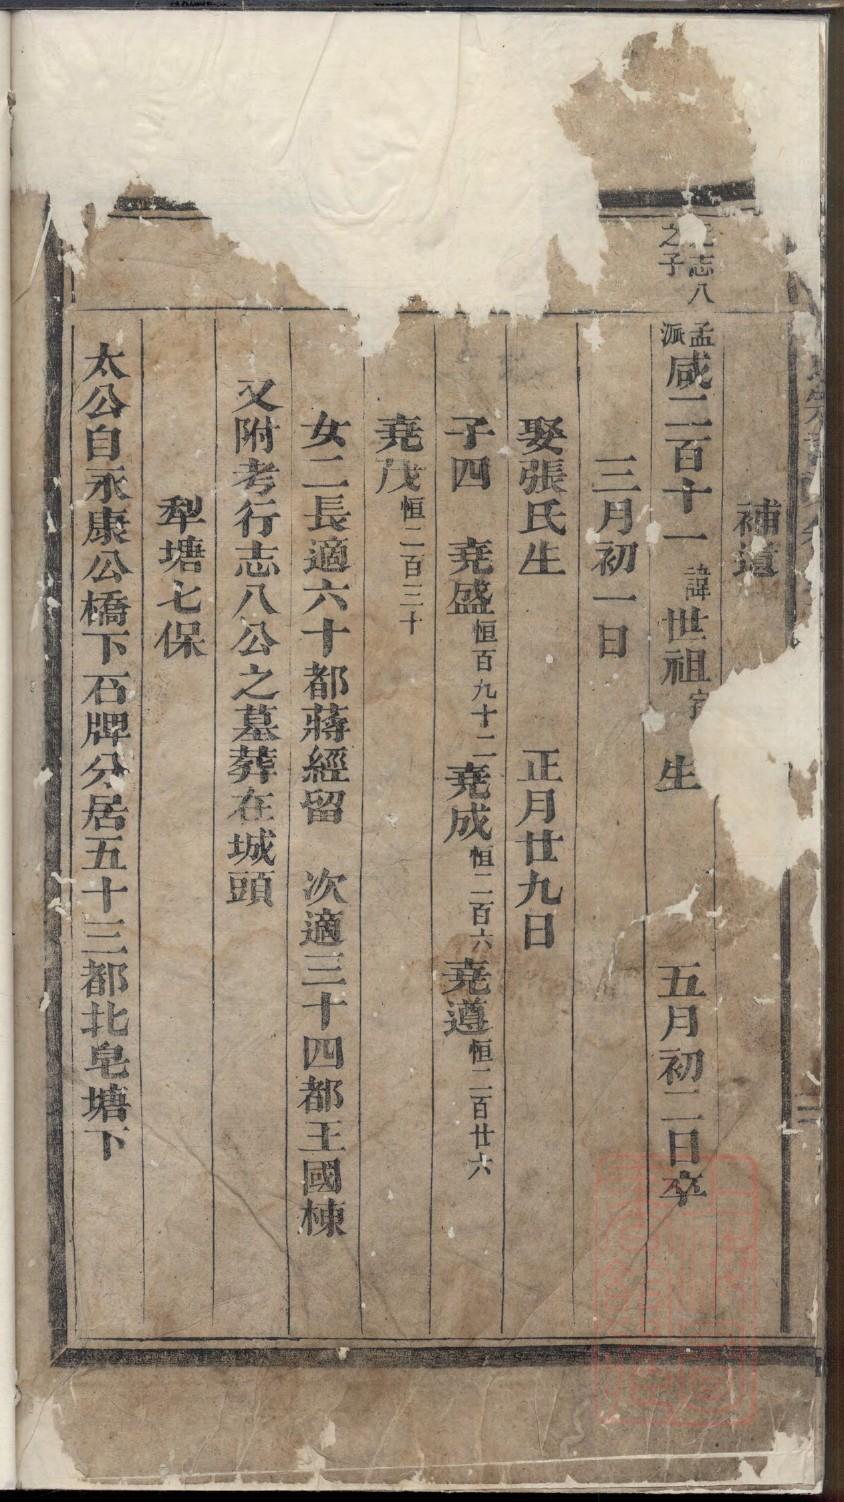 補遺
志八
之子
孟派咸二百十一 諱世祖字 生 五月初二日卒
三月初一日
娶張氏生 正月廿九日
子四 堯盛恒百九十二 堯成恒二百六 堯遵恒二百廿六
堯茂恒二百三十
女二長適六十都蔣經留 次適三十四都王國棟
又附考行志八公之墓葬在城頭
犁塘七保
太公自永康公橋下石牌分居五十三都北皂塘下